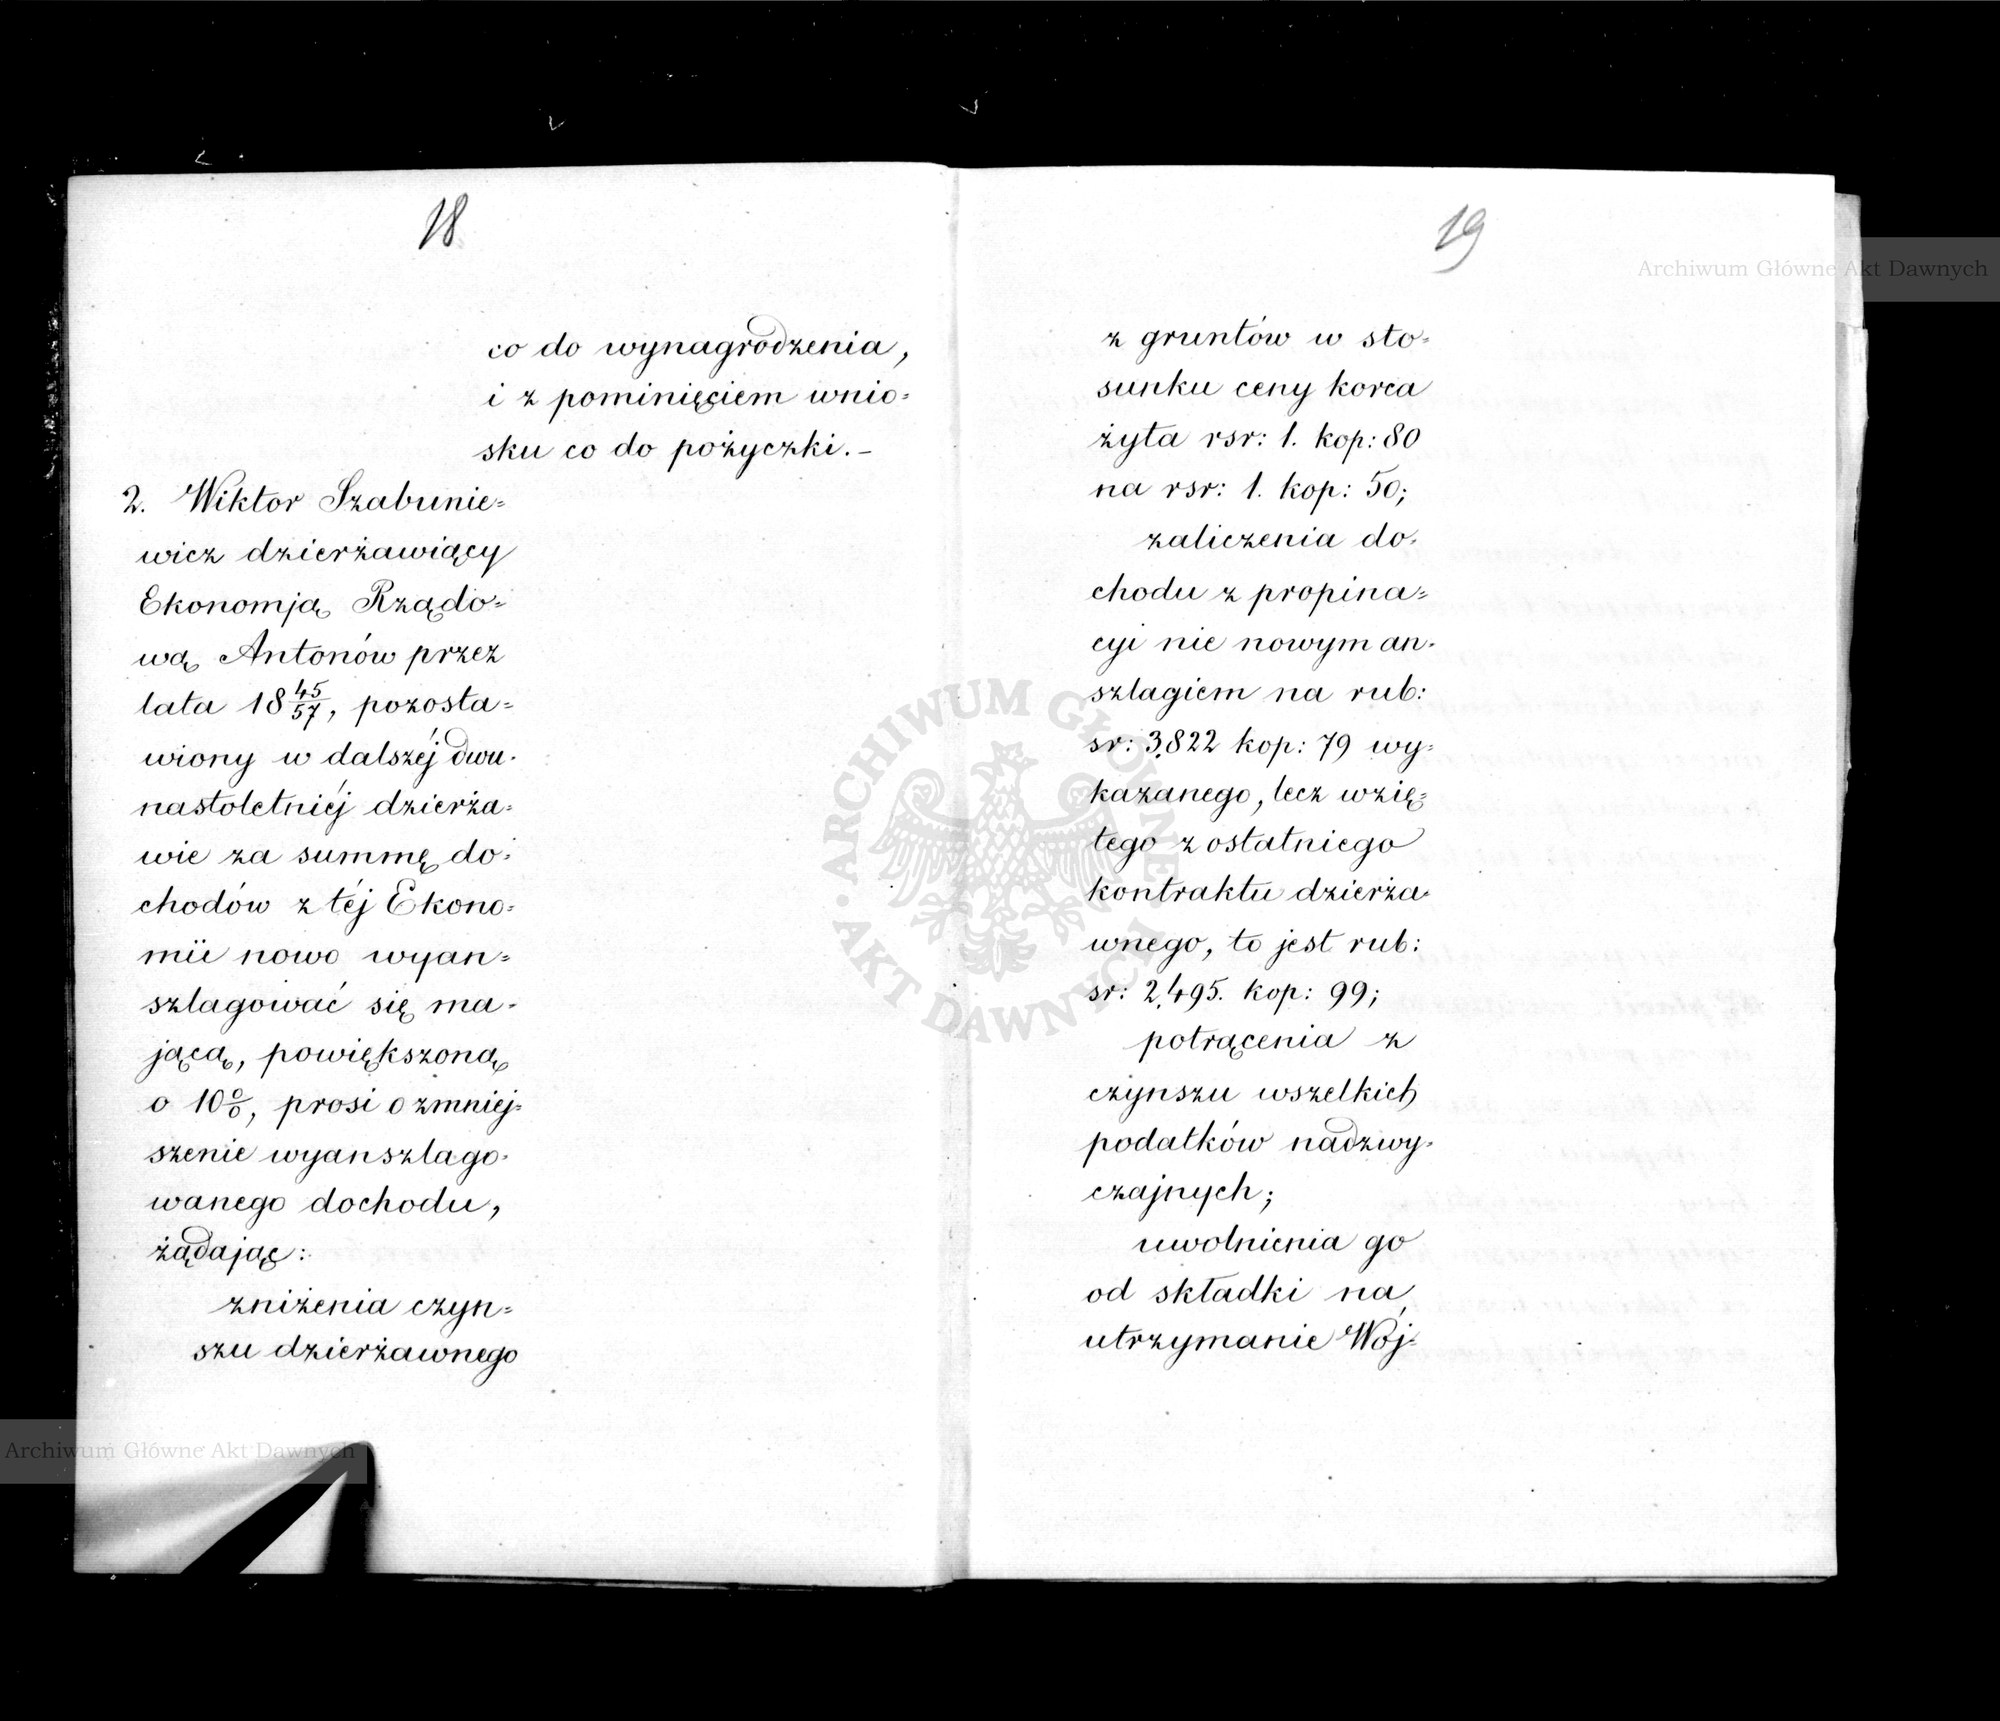 18
co do wynagrodzenia,
i z pominięciem wnio=
sku co do pożyczki.–
2. Wiktor Szabunie=
wicz dzierżawiący
Ekonomją Rządo=
wą Antonów przez
lata 18 45/57, pozosta=
wiony w dalszéj dwu=
nastoletniéj dzierża=
wie za summę do=
chodów z téj Ekono=
mii nowo wyan=
szlagować się ma=
jącą, powiększoną
o 10%, prosi o zmniej=
szenie wyanszlago=
wanego dochodu,
żądając:
zniżenia czyn=
szu dzierżawnego
19
z gruntów w sto=
sunku ceny korca
żyta rsr: 1. kop: 80
na rsr: 1. kop: 50;
zaliczenia do=
chodu z propina=
cyi nie nowym an=
szlagiem na rub:
sr: 3,822 kop: 79 wy=
kazanego, lecz wzię=
tego z ostatniego
kontraktu dzierża=
wnego, to jest rub:
sr: 2,495. kop: 99;
potrącenia z
czynszu wszelkich
podatków nadzwy=
czajnych;
uwolnienia go
od składki na
utrzymanie Wój=
Archiwum Główne Akt Dawnych
ARCHIWUM GŁÓWNE
AKT DAWNYCH
Archiwum Główne Akt Dawnych